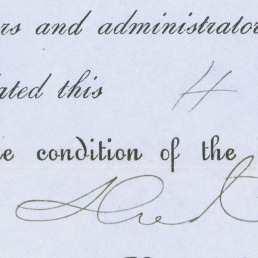 rs and administrato
ated this 4
e condition of the